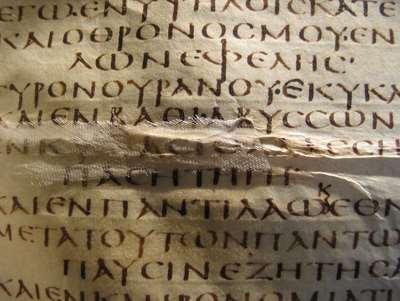 ΕΓΩΕΝΥΨΗΛΟΙϹΚΑΤΕ
ΚΑΙΟΘΡΟΝΟϹΜΟΥΕΝ
ΛΩΝΕΦΕΛΗϹ·
ΓΥΡΟΝΟΥΡΑΝΟΥΕΚΥΚΛ
ΚΑΙΕΝΒΑΘΙΑΒΥϹϹΩΝ
ΠΑϹΗΤΗΓΗ
ΚΑΙΕΝΠΑΝΤΙΛΑΩΕΘΝ
ΜΕΤΑΤΟΥΤΩΝΠΑΝΤΩ
ΠΑΥϹΙΝΕΖΗΤΗϹΑ
ΚΑΙΕΝΚΛΗΡΟΝΟΜΙΑΤΙ